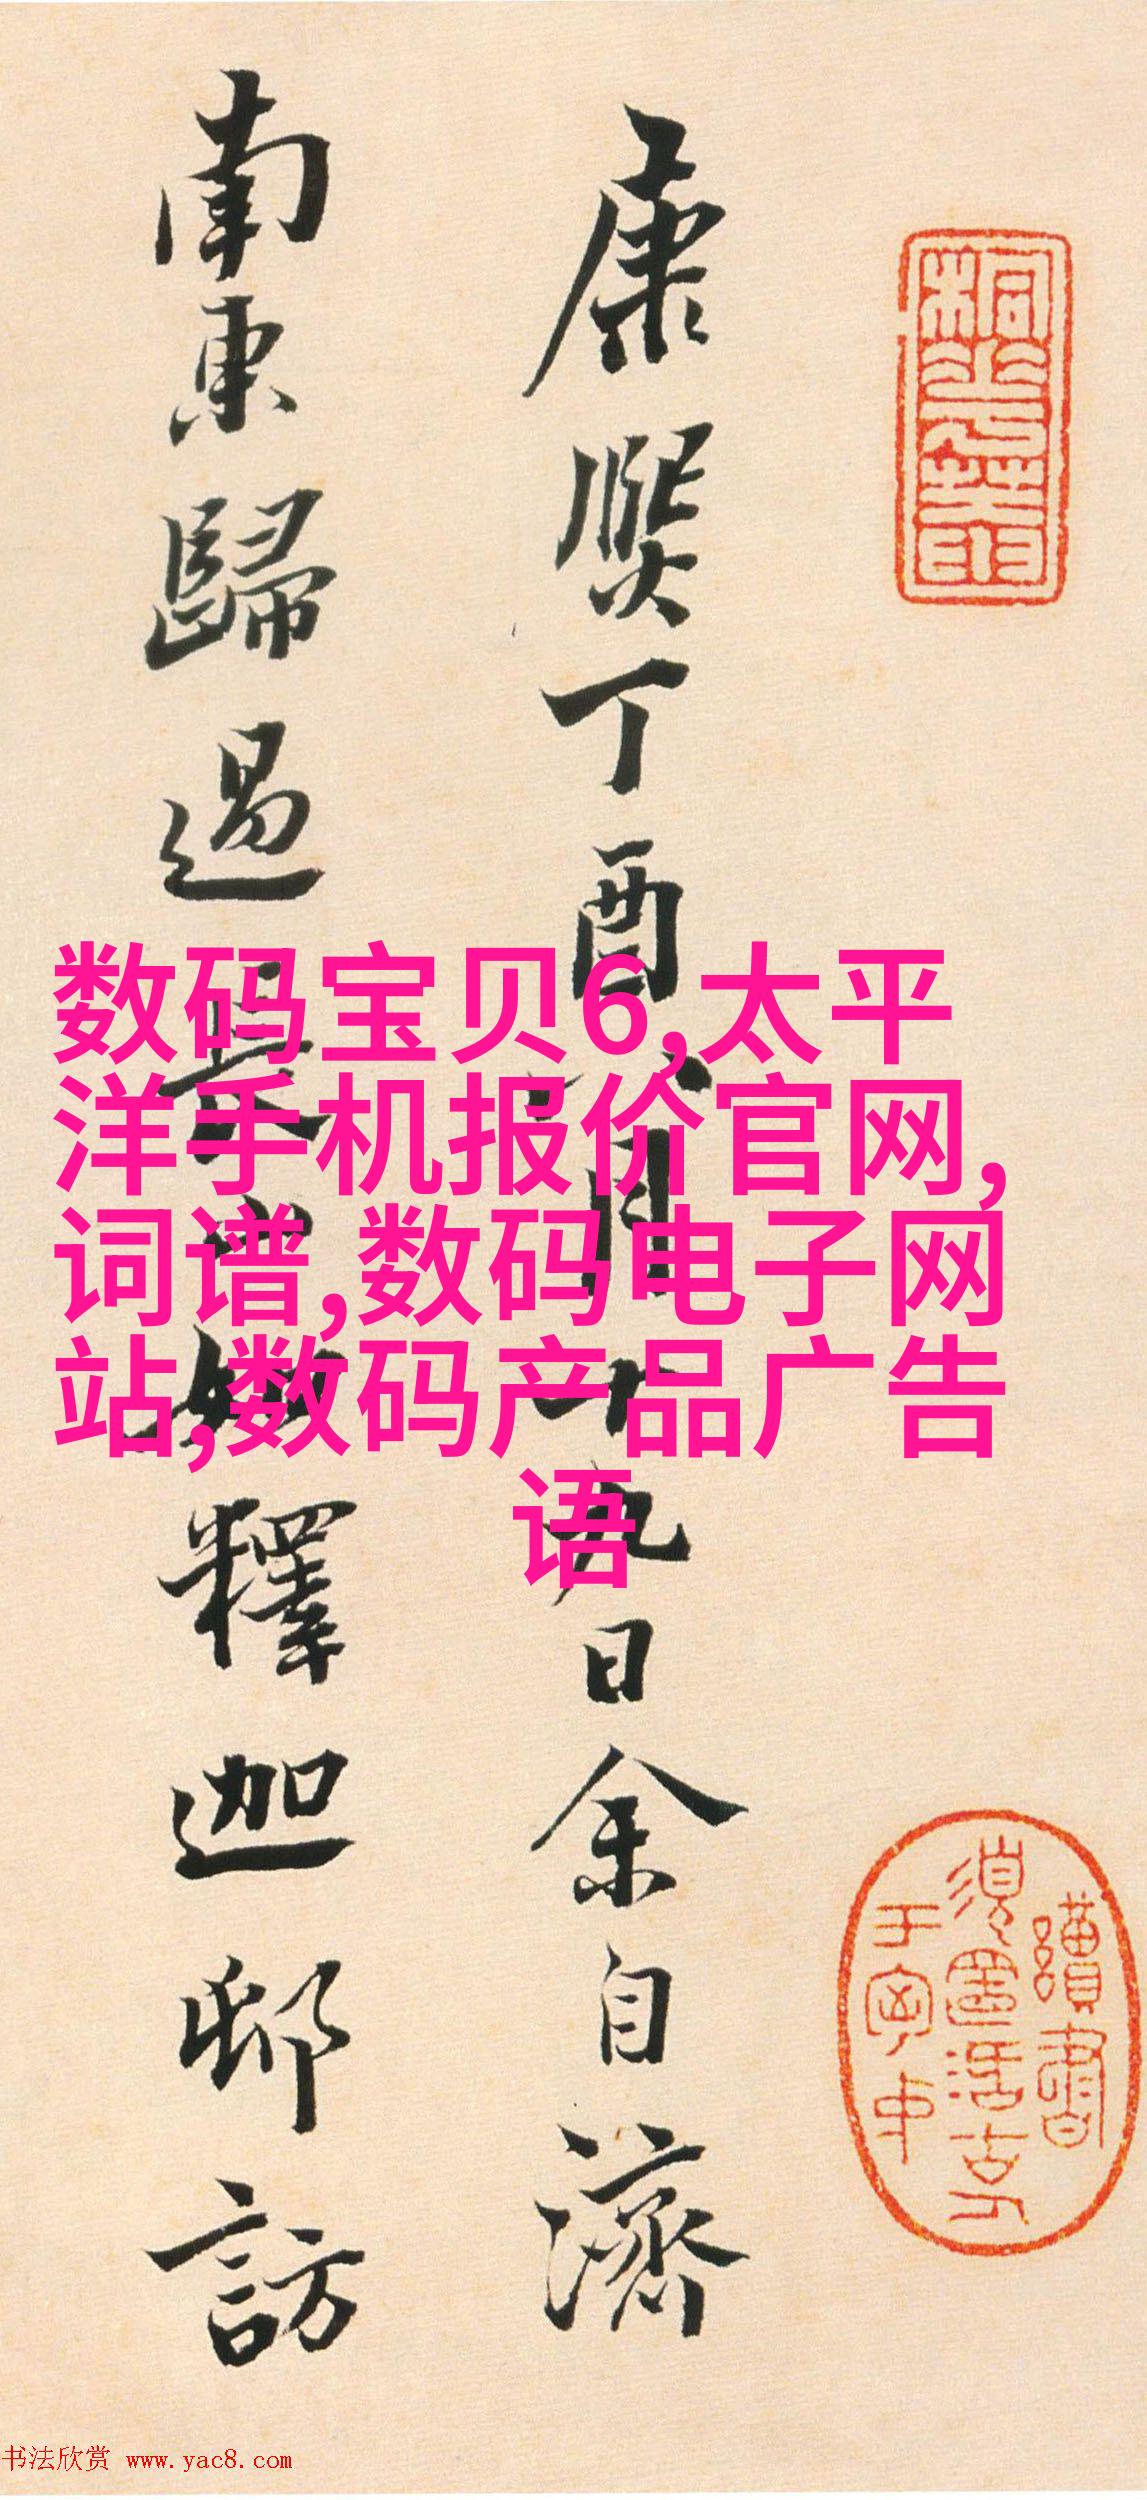 康熙丁酉八月十九日余自濟
南東歸過長山鄉釋迦邨訪
数码宝贝6,太平
洋手机报价官网,
词谱,数码电子网
站,数码产品广告
语
书法欣赏 www.yac8.com